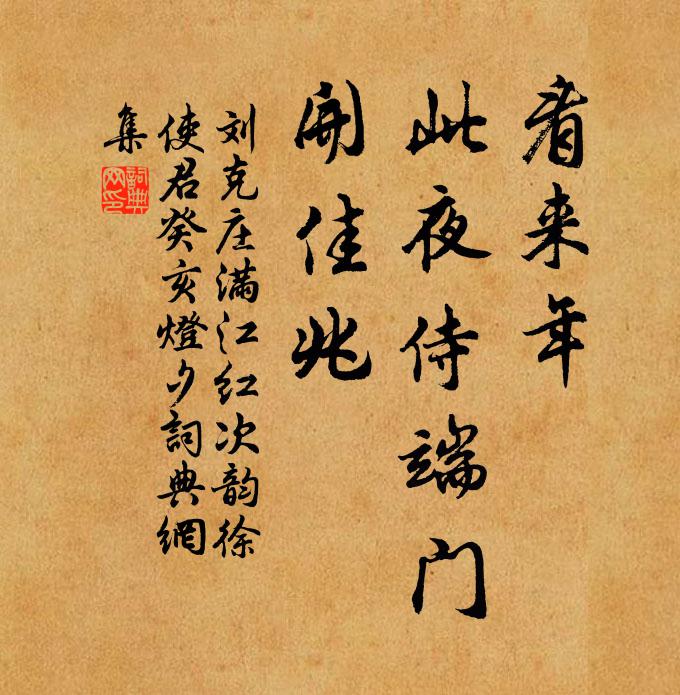 看来年
此夜侍端门
开佳兆
刘克庄满江红次韵徐
使君癸亥燈夕詞典網
集
詞典网印